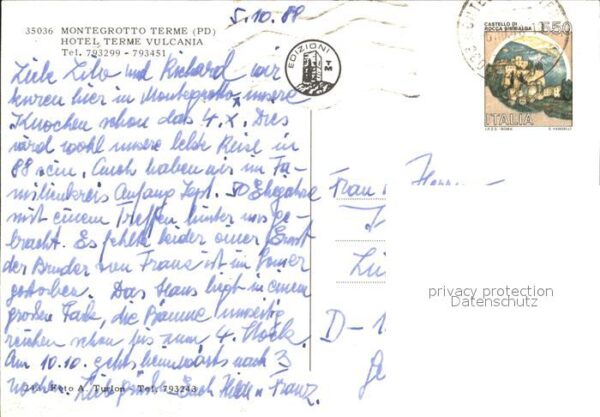 5.10.88
35036 MONTEGROTTO TERME (PD)
HOTEL TERME VULCANIA
Tel. 793299 - 793451
EDIZIONI
TM
CASTELLO DI
ROCCA SINIBALDA
550
ITALIA
I.P.Z.S. - ROMA
Liebe Lilo und Richard wir
kuren hier in Montegrotto, unsere
Knochen schon das 4.X. Dies
wird wohl unsere letzte Reise in
88 sein. Auch haben wir im Fa-
milienkreis Anfang Sept. 50 Ehejahre
mit einem Treffen hinter uns ge-
bracht. Es fehlte leider einer Ernst
der Bruder von Franz ist im Sommer
gestorben. Das Haus liegt in einem
großen Park, die Bäume
reichen schon bis zum 4. Stock.
Am 10.10. gehts heimwärts nach 3
Wochen. Liebe Grüße Euch Hilde u. Franz.
Frau u. Herrn
Li
D-1
Foto A. Turlon - Tel. 793243
privacy protection
Datenschutz